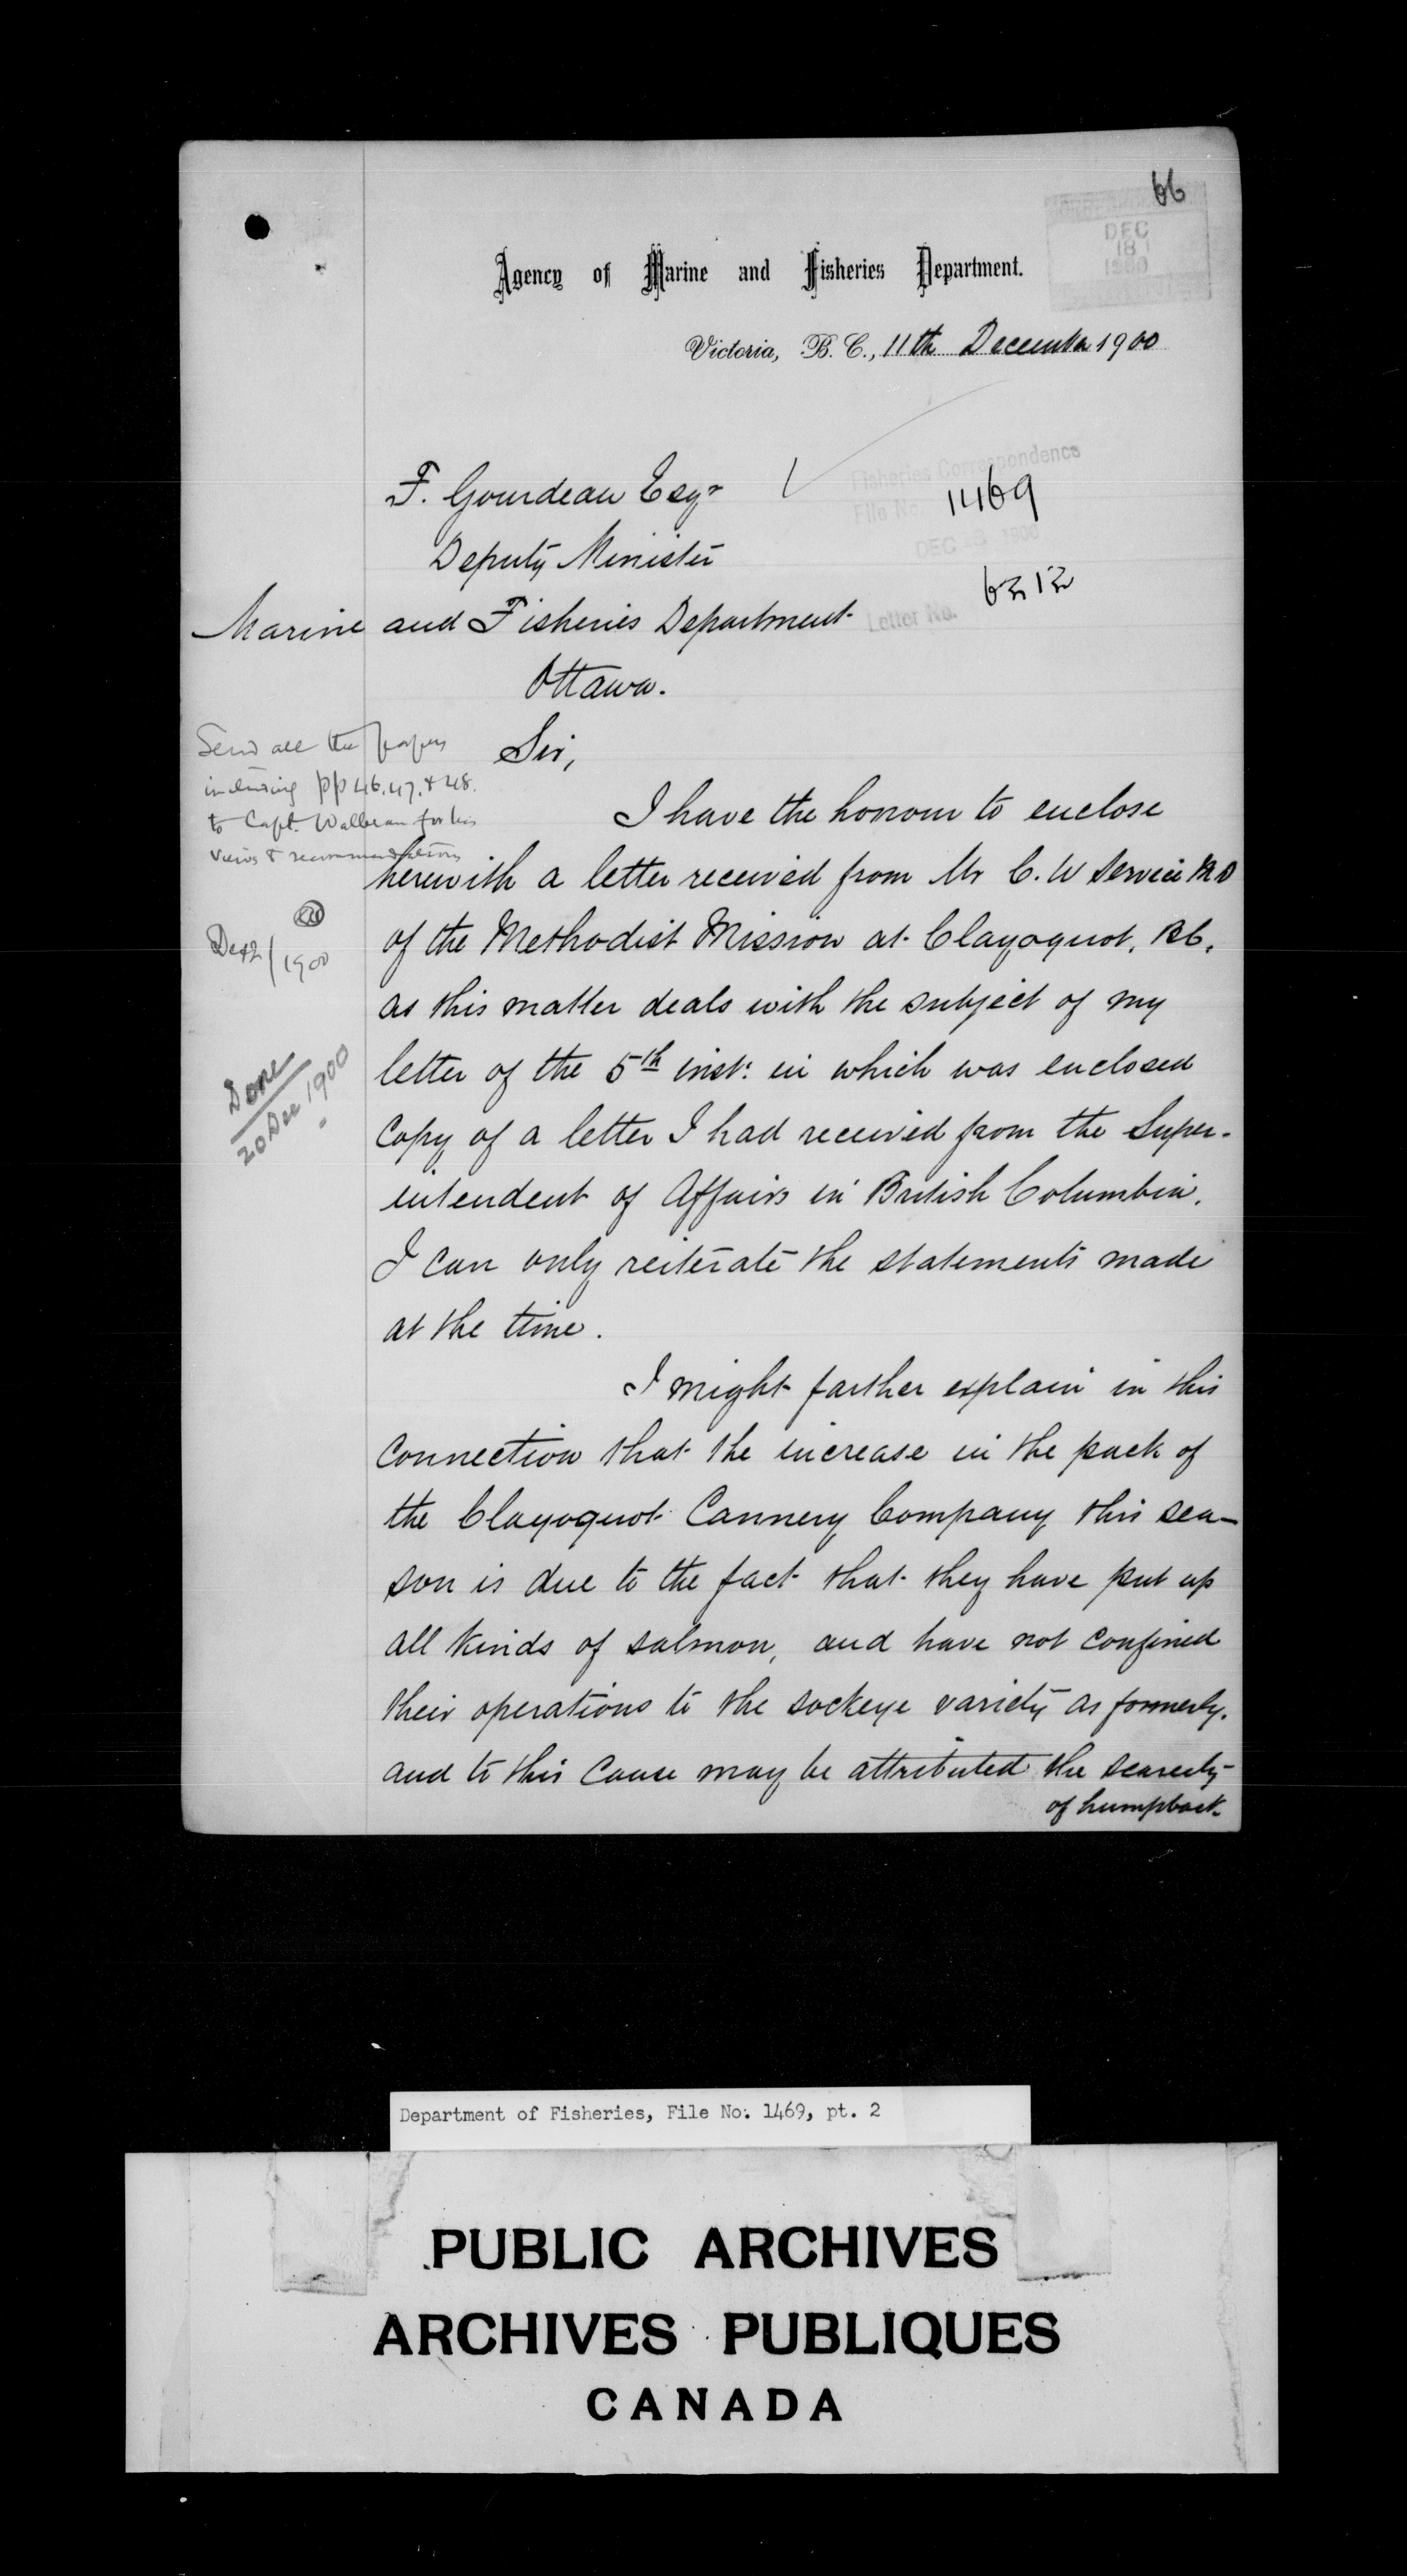 66
DEC
18
1900
Agency of Marine and Fisheries Department.
Victoria, B. C., 11th December 1900
F. Gourdeau Esqr
Fisheries Correspondence
File No. 1469
Deputy Minister
DEC 1900
Marine and Fisheries Department
Letter No. 6312
Ottawa.
Send all the papers
including pp 46.47. & 48.
to Capt. Walbran for his
views & recommendations
Dec 1900
Done
20 Dec 1900
Sir,
I have the honour to enclose
herewith a letter received from Mr C. W Service M D
of the Methodist Mission at Clayoquot, B.C.
as this matter deals with the subject of my
letter of the 5th inst: in which was enclosed
copy of a letter I had received from the Super-
intendent of Affairs in British Columbia.
I can only reiterate the statements made
at the time.
I might farther explain in this
connection that the increase in the pack of
the Clayoquot Cannery Company this sea-
son is due to the fact that they have put up
all kinds of salmon, and have not confined
their operations to the sockeye variety as formerly.
and to this cause may be attributed the scarcity
of humpback
Department of Fisheries, File No. 1469, pt. 2
PUBLIC ARCHIVES
ARCHIVES PUBLIQUES
CANADA